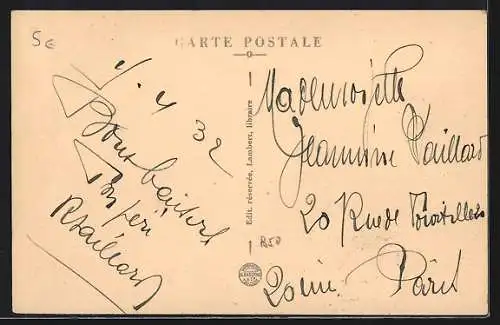 5€
CARTE POSTALE
1. 4 32
Bons baisers
R Paillard
Edit. réservée, Lambert, libraire
Mademoiselle
Jeannine Paillard
20 Rue de Tourtilles
R50
20èm. Paris